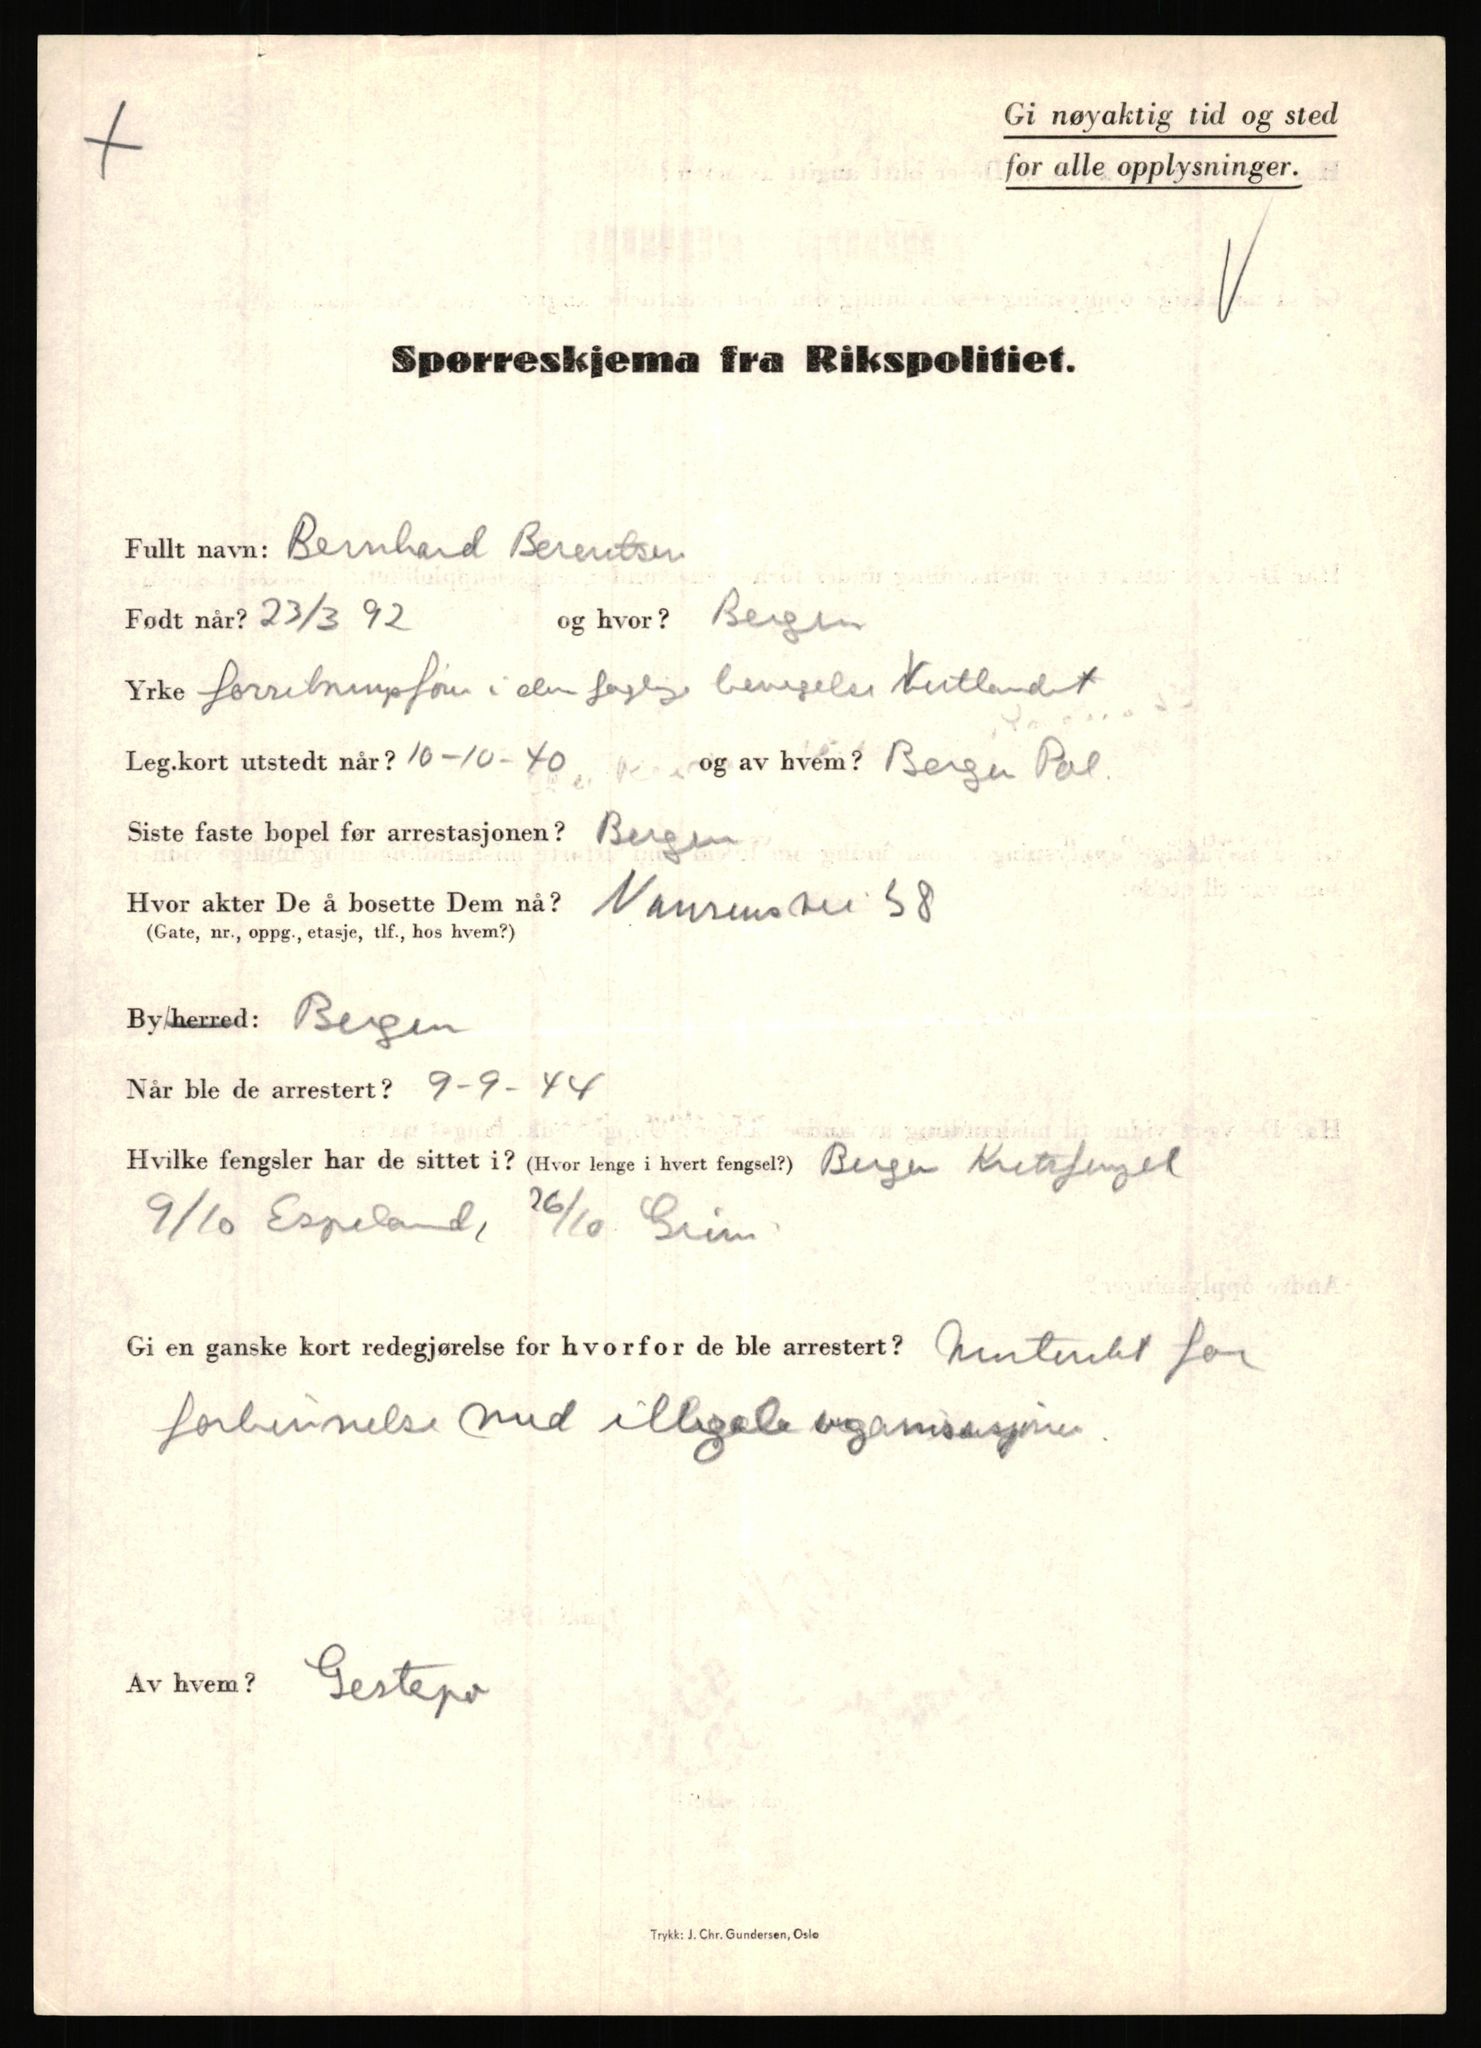 Gi nøyaktig tid og sted
for alle opplysninger.
Spørreskjema fra Rikspolitiet.
Fullt navn: Bernhard Berentsen
Født når? 23/3 92 og hvor? Bergen
Yrke i den faglige bevegelse Vestlandet
Leg.kort utstedt når? 10-10-40 og av hvem? Bergen Pol.
Siste faste bopel før arrestasjonen? Bergen
Hvor akter De å bosette Dem nå? Nansensvei 58
(Gate, nr., oppg., etasje, tlf., hos hvem?)
By/herred: Bergen
Når ble de arrestert? 9-9-44
Hvilke fengsler har de sittet i? (Hvor lenge i hvert fengsel?) Bergen Kretsfengsel
9/10 Espeland, 26/10 Grini
Gi en ganske kort redegjørelse for hvorfor de ble arrestert? Mistenkt for
forbinnelse med illegale organisasjoner.
Av hvem? Gestapo
Trykk: J. Chr. Gundersen, Oslo